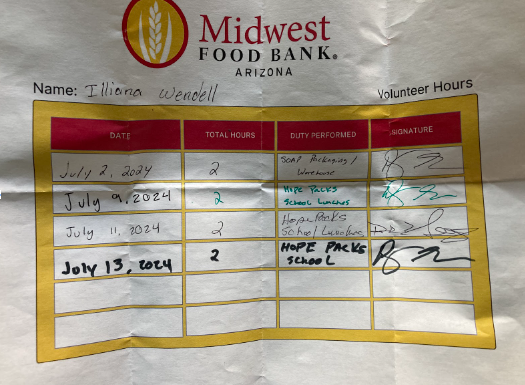 Midwest
FOOD BANK®
ARIZONA
Name: Illiana Wendell
Volunteer Hours
DATE TOTAL HOURS DUTY PERFORMED SIGNATURE
July 2, 2024 2 SOAP Packaging /
Warehouse
July 9, 2024 2 HOPE PACKS
School Lunches
July 11, 2024 2 Hope Packs
School Lunches
July 13, 2024 2 HOPE PACKS
SCHOOL